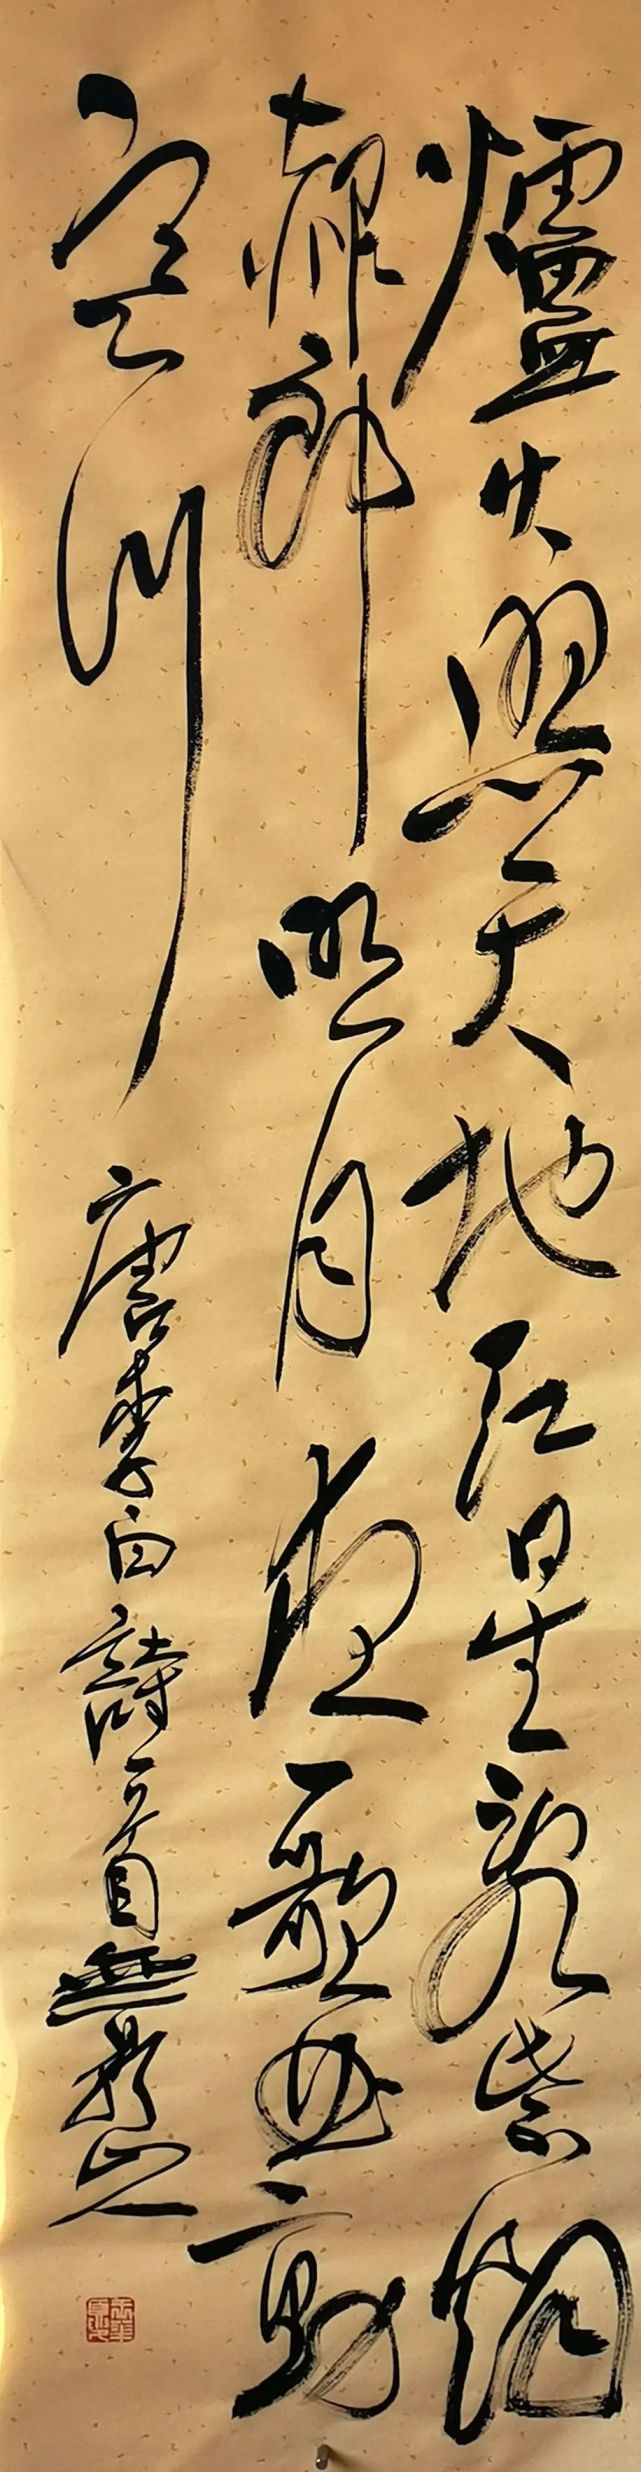 爐火照天地紅星亂紫烟
赧郎明月夜歌曲動
寒川
唐李白詩一首無影山人